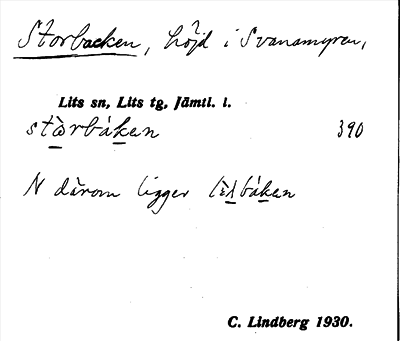 Storbacken, höjd i Svanamyren,
Lits sn, Lits tg, Jämtl. l.
stàrbáken 390
N därom ligger lìłbáken
C. Lindberg 1930.